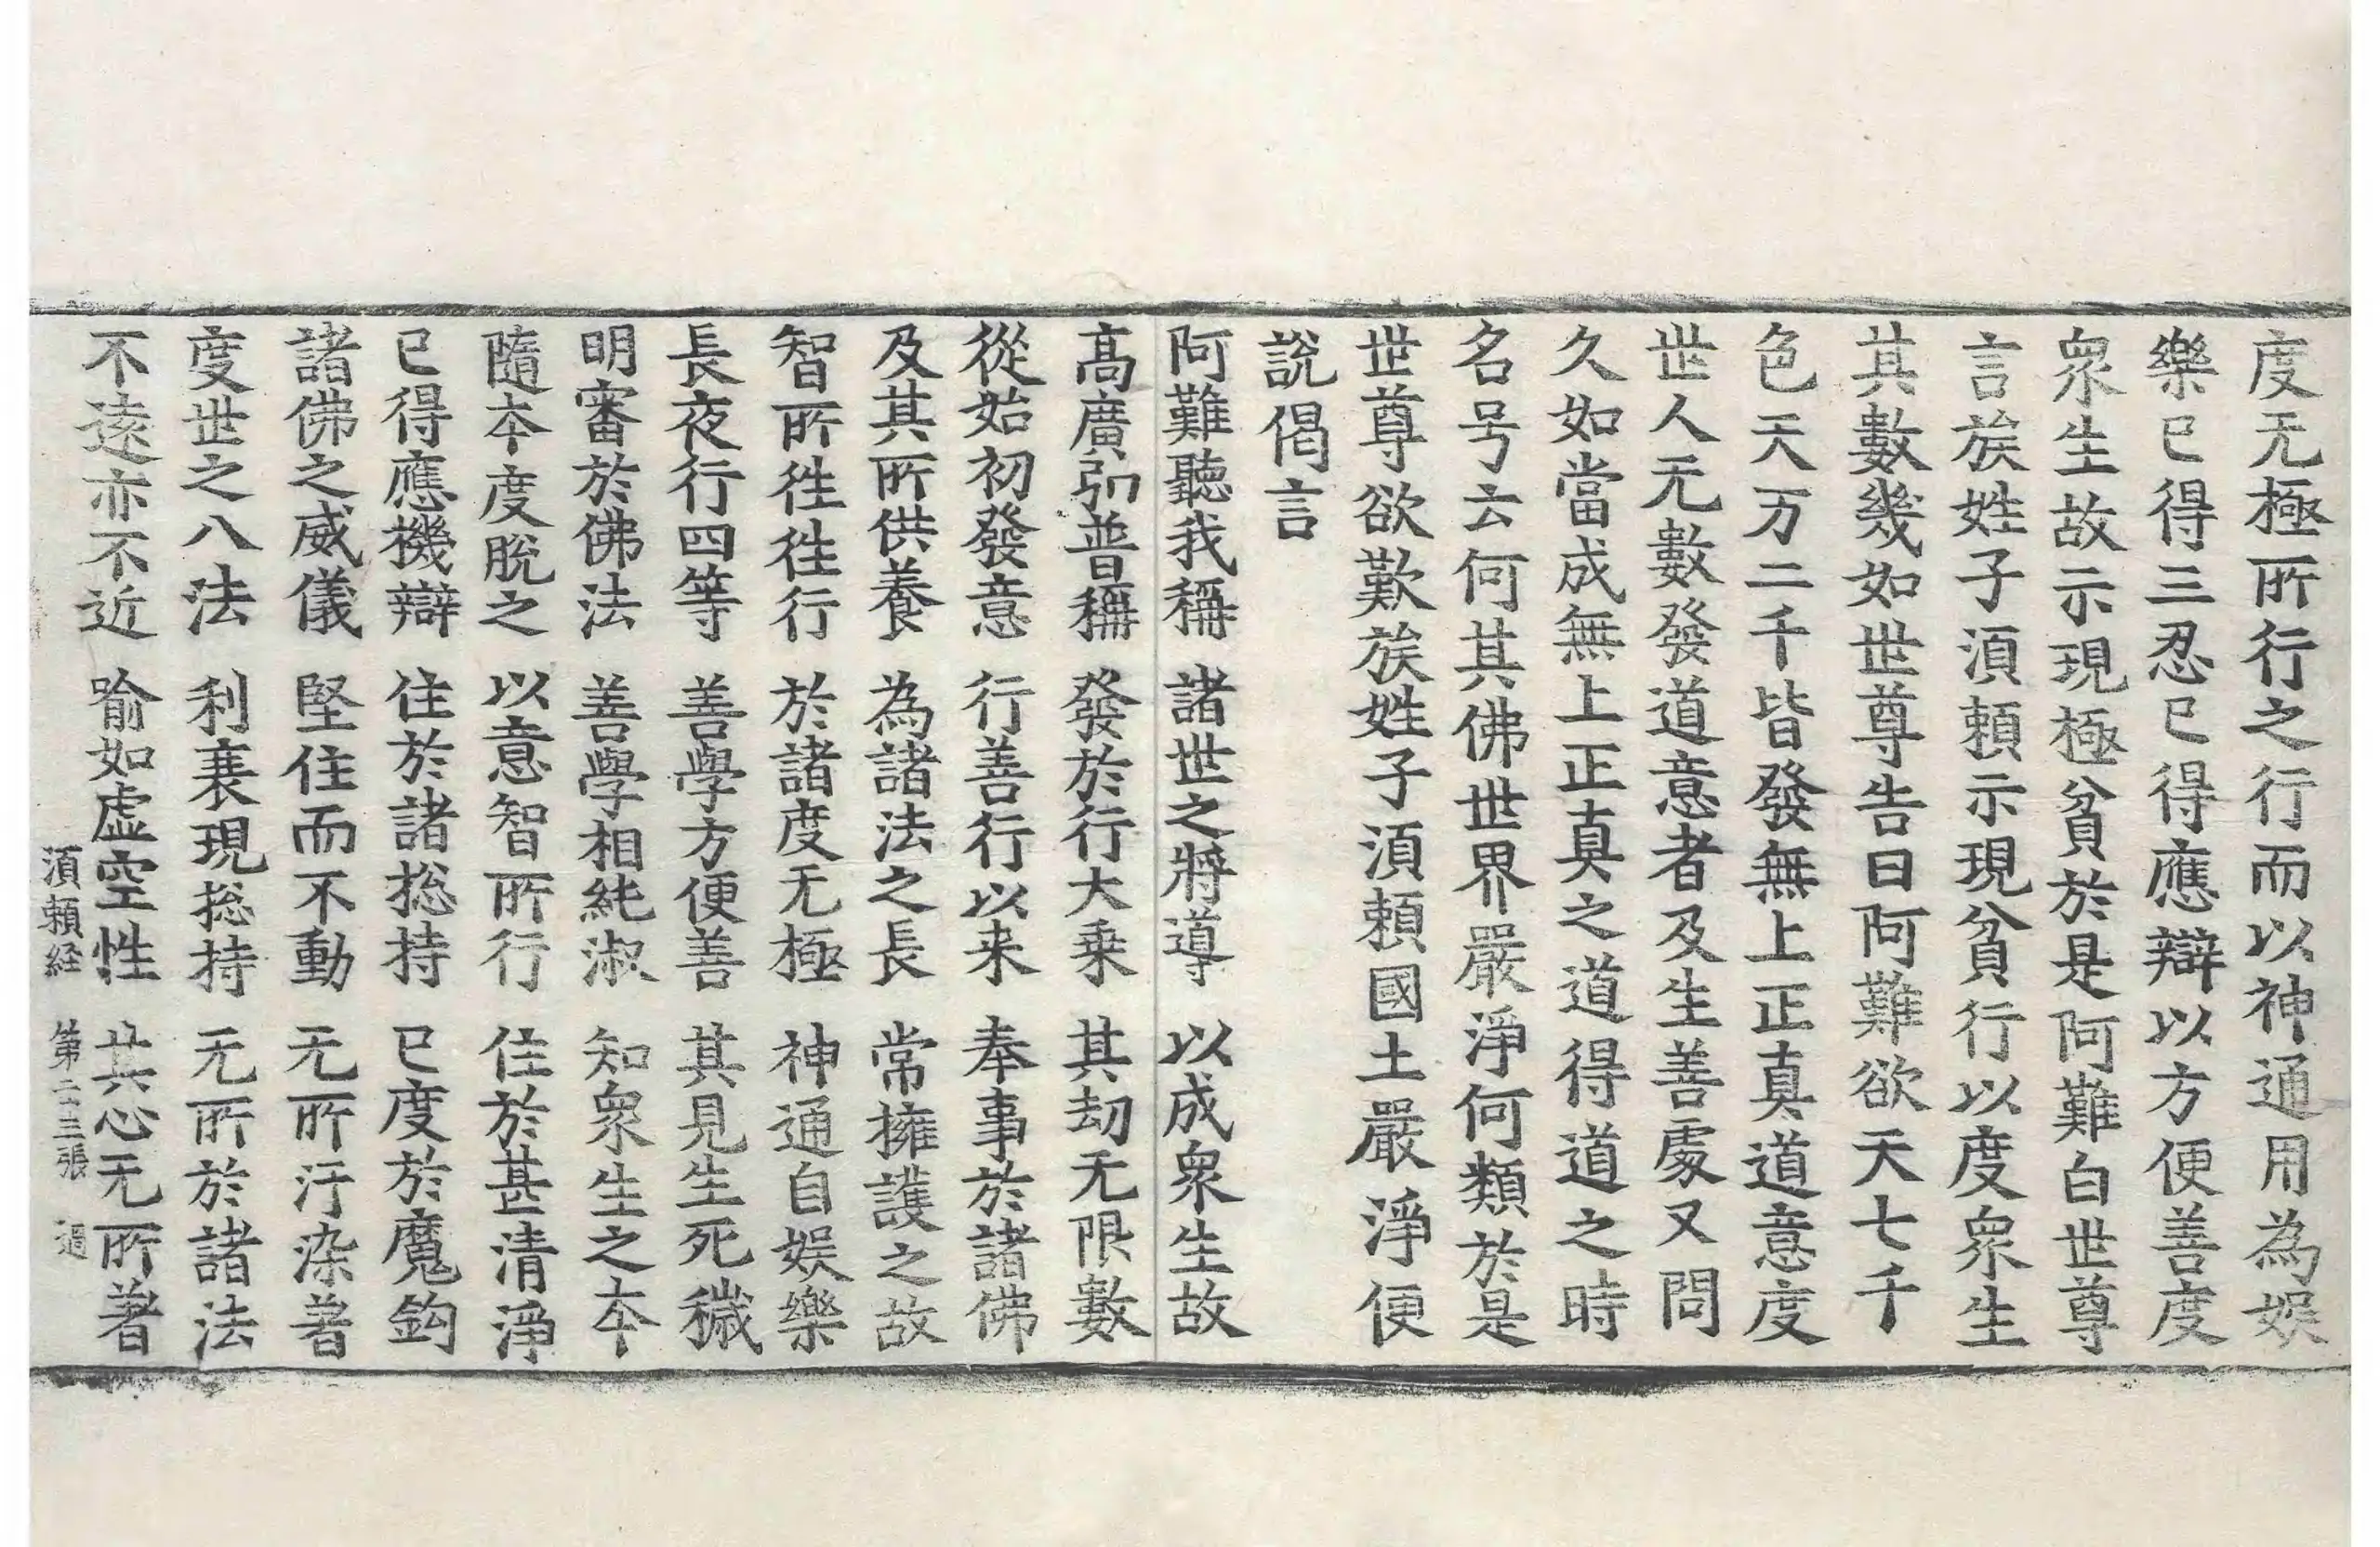 度无極所行之行而以神通用為娱
樂已得三忍已得應辯以方便善度
衆生故示現極貧於是阿難白世尊
言族姓子湏頼示現貧行以度衆生
其數幾如世尊告曰阿難欲天七千
色天万二千皆發無上正真道意度
世人无數發道意者及生善處又問
久如當成無上正真之道得道之時
名号云何其佛世界嚴淨何類於是
世尊欲歎族姓子湏頼國土嚴淨便
說偈言
阿難聽我稱　諸世之將導　以成衆生故
高廣弘普稱　發於行大乗　其劫无限數
從始初發意　行善行以来　奉事於諸佛
及其所供養　為諸法之長　常擁護之故
智所徃徃行　於諸度无極　神通自娱樂
長夜行四等　善學方便善　其見生死穢
明審於佛法　善學相純淑　知衆生之夲
隨夲度脫之　以意智所行　住於甚清淨
已得應機辯　住於諸捴持　已度於魔鉤
諸佛之威儀　堅住而不動　无所汙染著
度世之八法　利衰現捴持　无所於諸法
不遠亦不近　喻如虛空性　其心无所著
湏頼経　第二三張